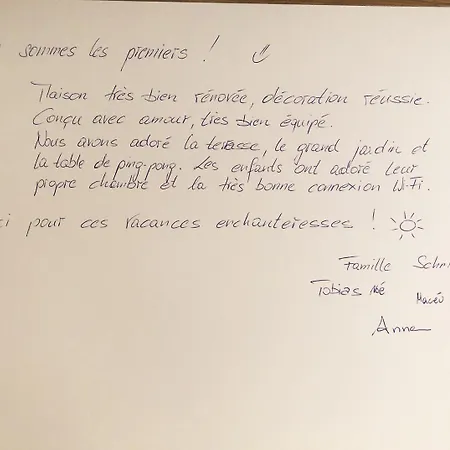 sommes les premiers !
Maison très bien rénovée, décoration réussie.
Conçu avec amour, très bien équipé.
Nous avons adoré la terasse, le grand jardin et
la table de ping-pong. Les enfants ont adoré leur
propre chambre et la très bonne connexion Wi-Fi.
ci pour ces vacances enchanteresses !
Famille Sch
Tobias
Anne